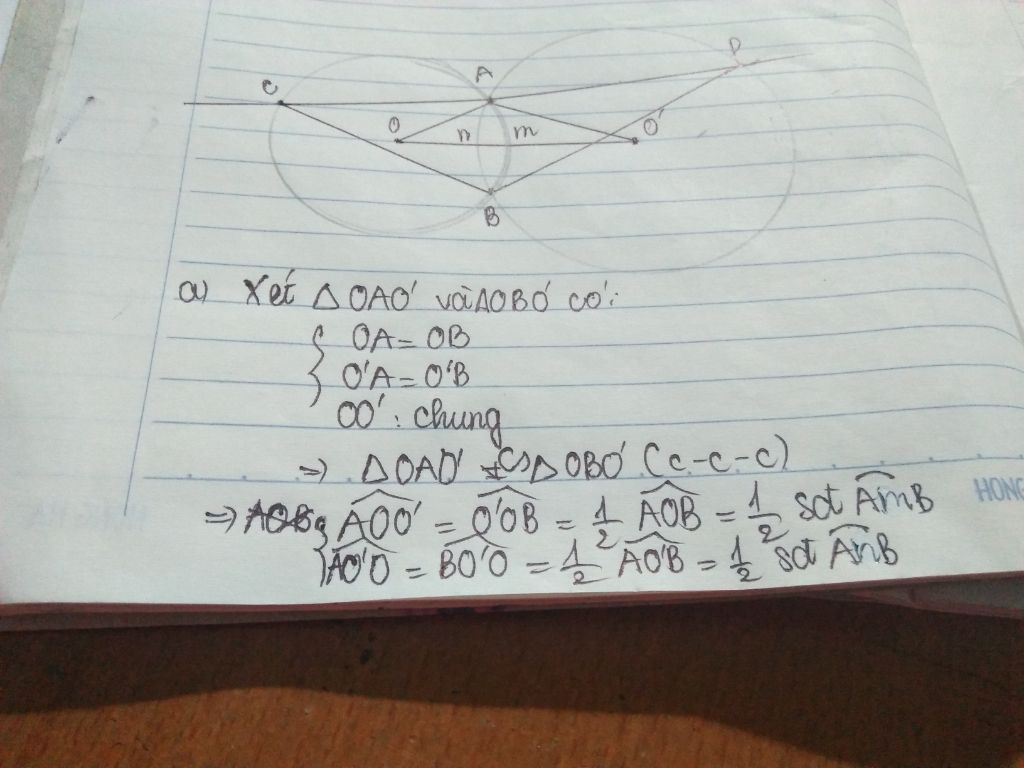 C A D
O n m O'
B
a) Xét ΔOAO' và ΔOBO' có:
OA = OB
O'A = O'B
OO' : chung
=> ΔOAO' ∽ ΔOBO' (c-c-c)
=> AOO' = O'OB = 1/2 AOB = 1/2 sđ AmB
AO'O = BO'O = 1/2 AO'B = 1/2 sđ AnB
HONG